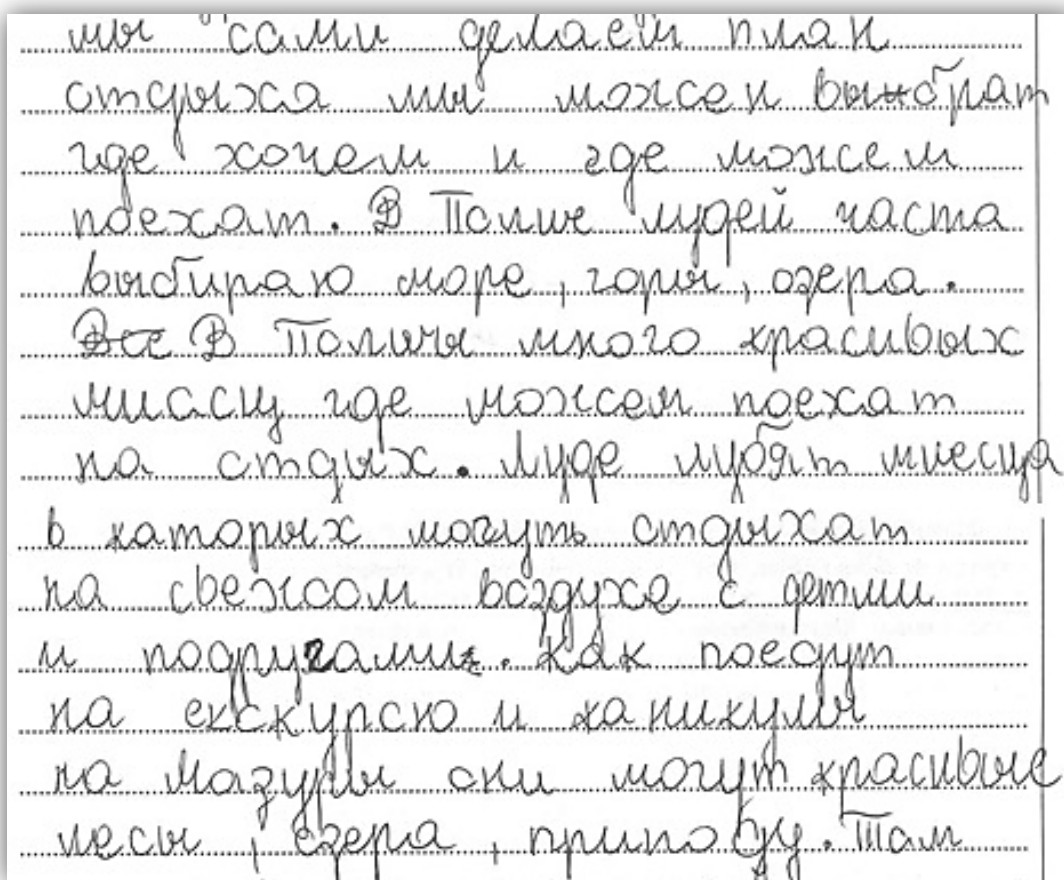 мы сами делаем план
отдыха мы можен выбрат
где хочем и где можем
поехат. В Полше лудей часта
выбираю море, горы, озера.
Все В Полшы много красивых
миссц где можем поехат
на отдых. Луде лубят миесца
в каторых могуть отдыхат
на свежом воздухе с детми
и подругами. Как поедут
на екскурсю и каникулы
на Мазуры они могут красивые
лесы, езера, природу. Там